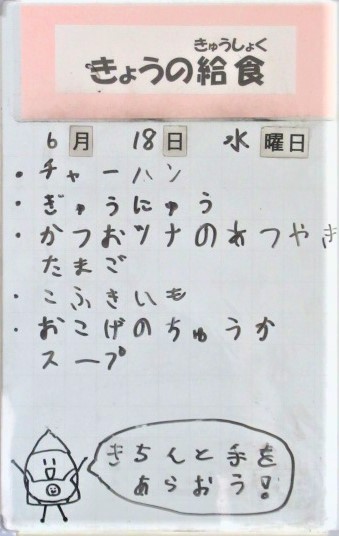 きゅうしょく
きょうの給食
6月 18日 水曜日
・チャーハン
・ぎゅうにゅう
・かつおツナのあつやき
たまご
・こふきいも
・おこげのちゅうか
スープ
きちんと手を
あらおう!